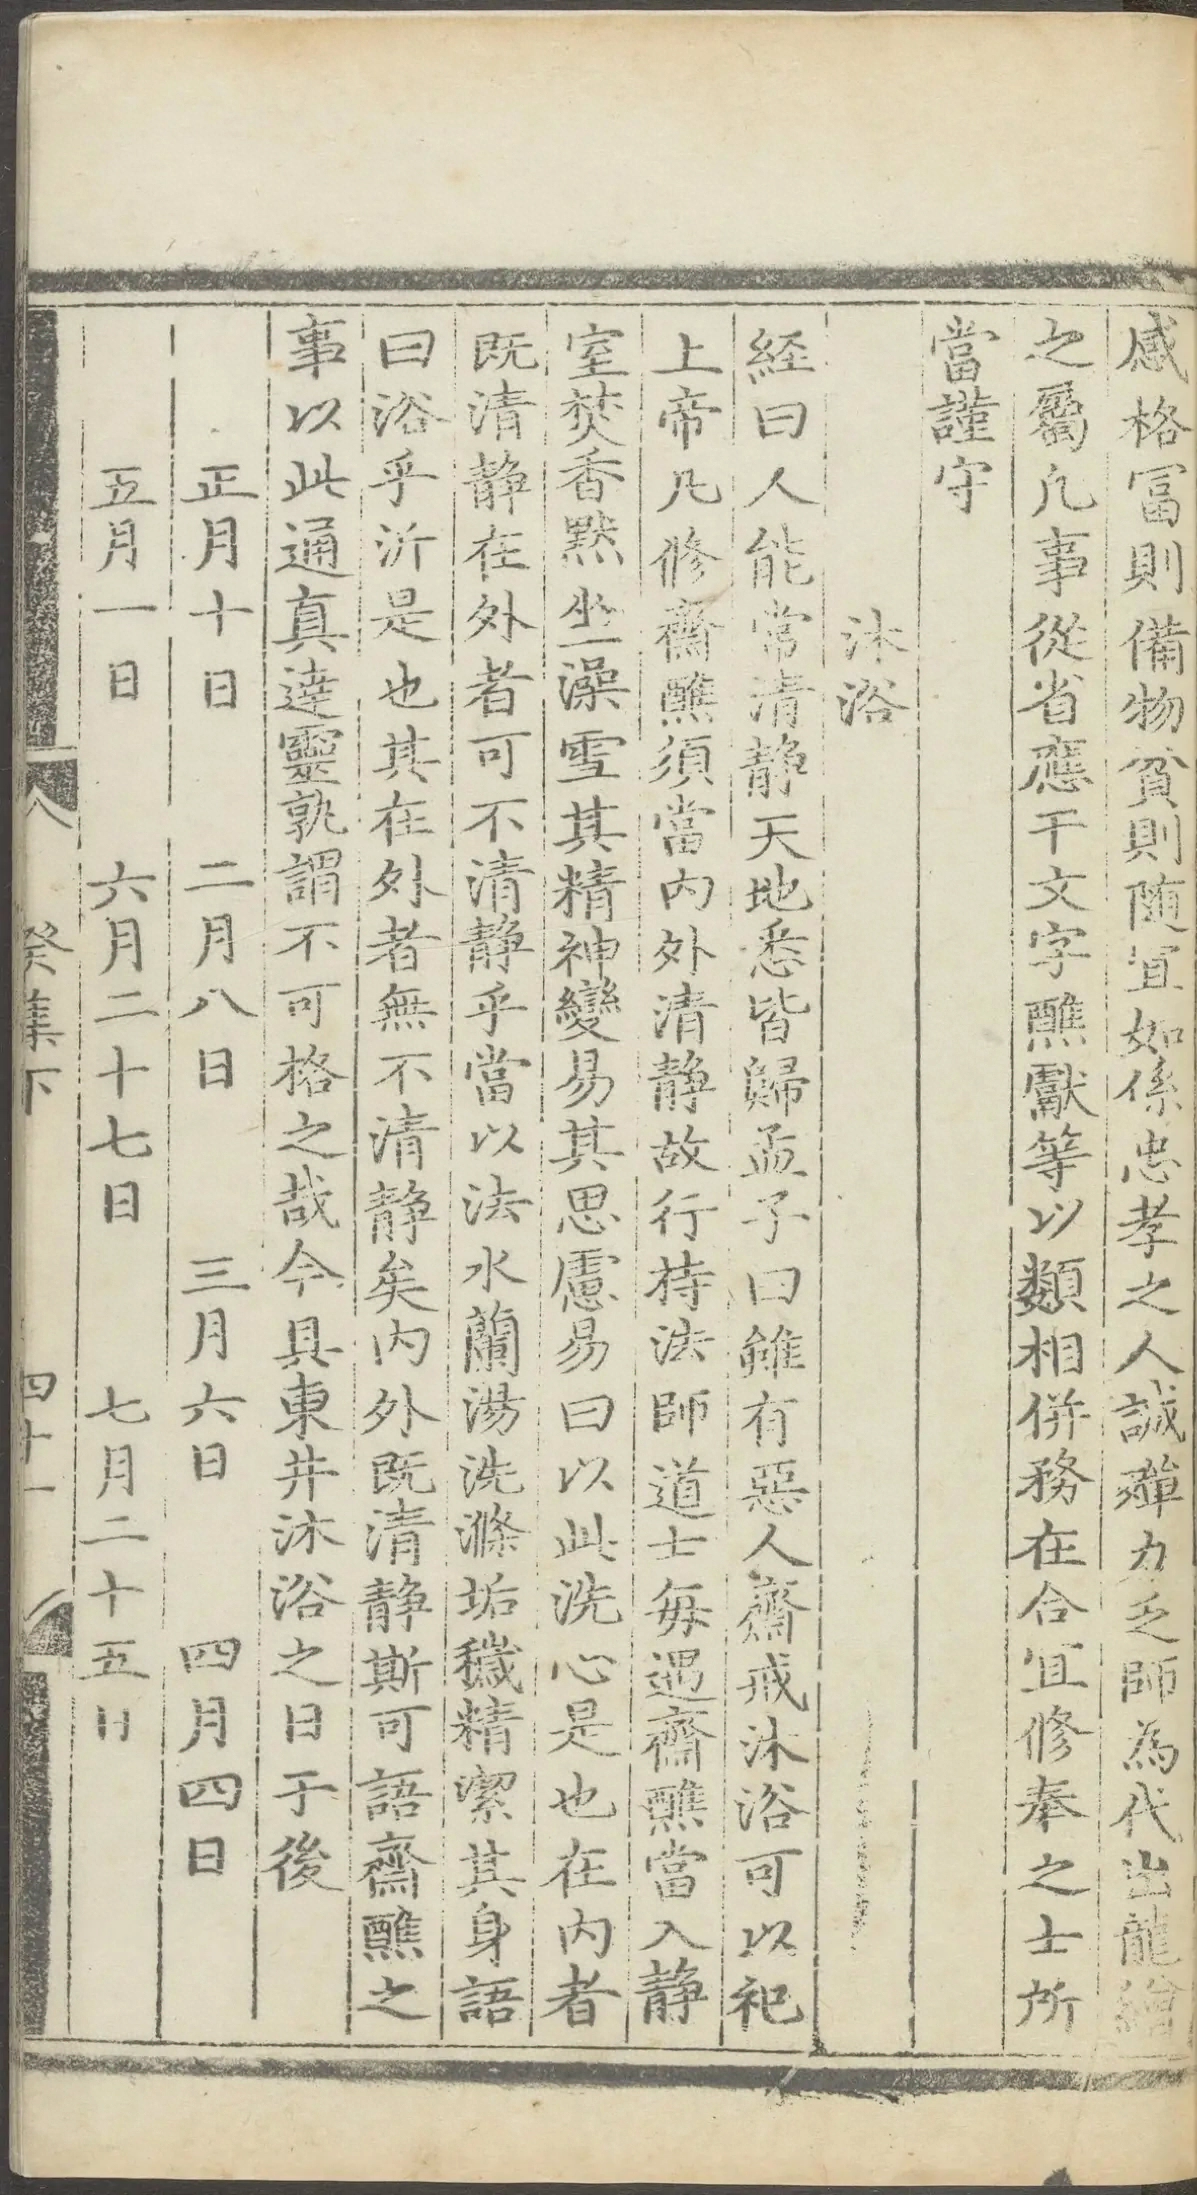 感格冨則備物貧則随宜如係忠孝之人誠殫力乏師為代出龍繪
之屬凡事從省應干文字醮獻等以類相併務在合宜修奉之士所
當謹守
沐浴
経曰人能常清静天地悉皆歸孟子曰雖有惡人齋戒沐浴可以祀
上帝凡修齋醮須當内外清静故行持法師道士毎遇齋醮當入静
室焚香默坐澡雪其精神變易其思慮易曰以此洗心是也在内者
既清静在外者可不清静乎當以法水蘭湯洗滌垢穢精潔其身語
曰浴乎沂是也其在外者無不清静矣内外既清静斯可語齋醮之
事以此通真達靈孰謂不可格之哉今具東井沐浴之日于後
正月十日 二月八日 三月六日 四月四日
五月一日 六月二十七日 七月二十五日
八 癸集下 四十一